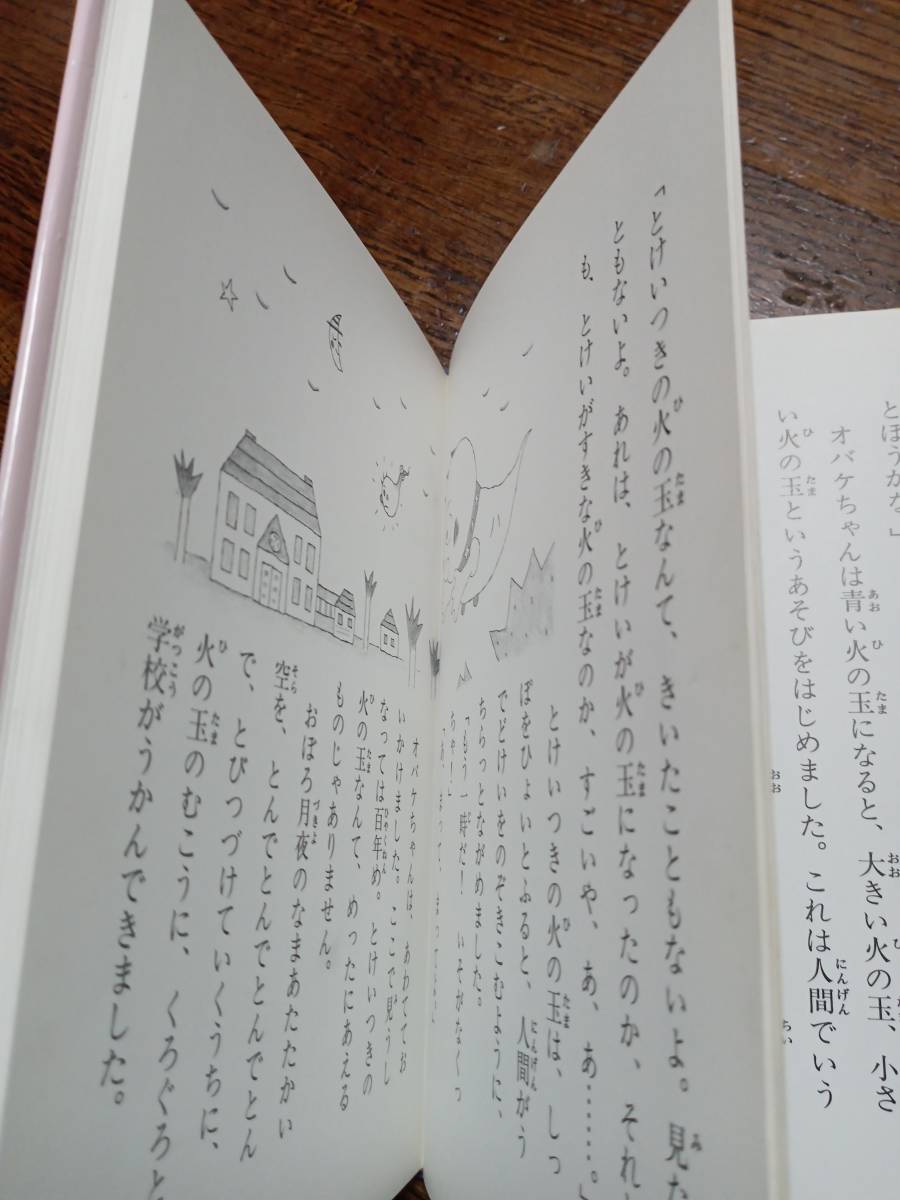 とぼうかな」
オバケちゃんは青い火の玉になると、大きい火の玉、小さ
い火の玉というあそびをはじめました。これは人間でいう
「とけいつきの火の玉なんて、きいたこともないよ。見た
ともないよ。あれは、とけいが火の玉になったのか、それ
も、とけいがすきな火の玉なのか、すごいや、あ、あ……。」
とけいつきの火の玉は、しっ
ぽをひょいとふると、人間がう
でどけいをのぞきこむように、
ちらっとながめました。
「もう一時だ！ いそがなくっ
ちゃ！」
まって、
オバケちゃんは、あわててお
いかけました。ここで見うし
なっては百年め。とけいつきの
火の玉なんて、めったにあえる
ものじゃありません。
おぼろ月夜のなまあたたかい
空を、とんでとんでとんでとん
で、とびつづけていくうちに、
火の玉のむこうに、くろぐろと
学校がうかんできました。